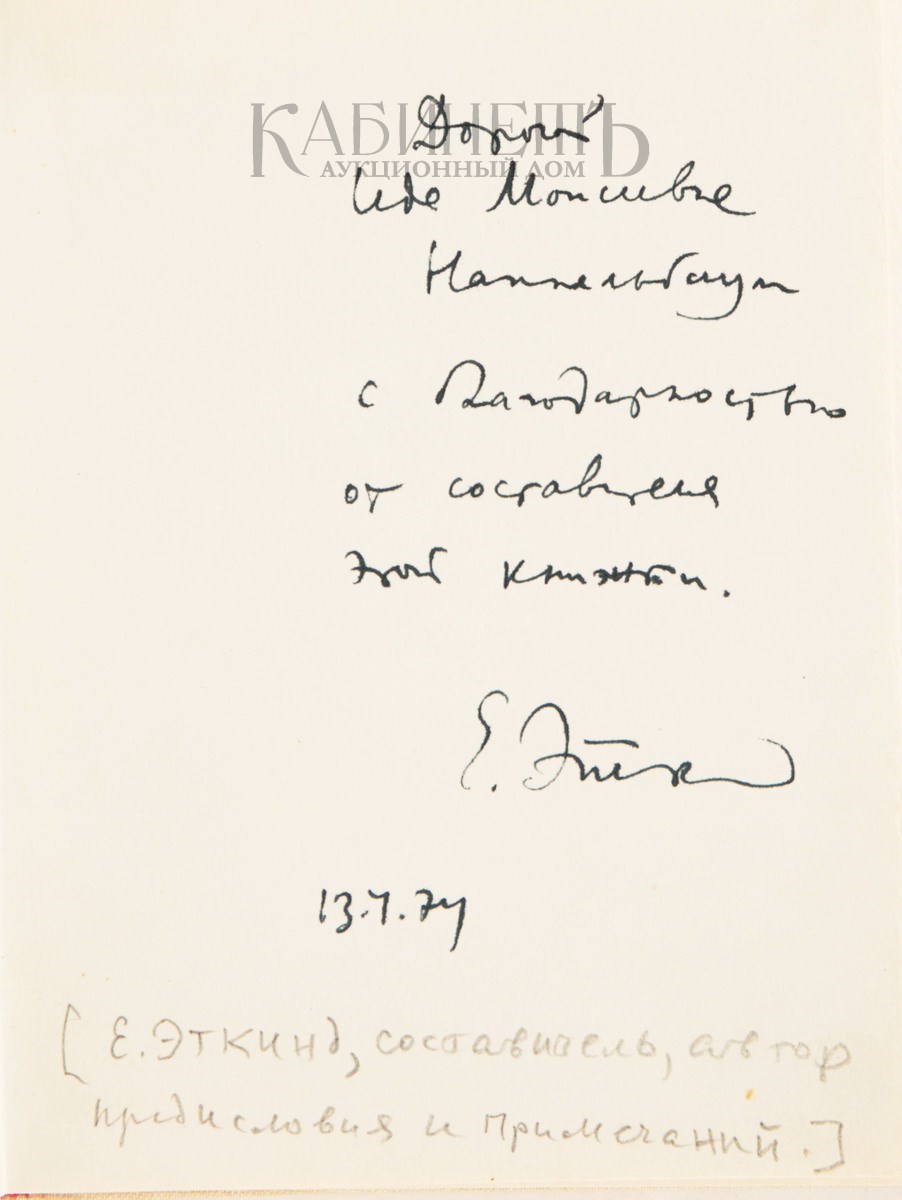 КАБИНЕТЪ
АУКЦИОННЫЙ ДОМ
Дорогой
Иде Моисеевне
Наппельбаум
с благодарностью
от составителя
этой книжки.
Е. Эткинд
13.1.74
[Е. Эткинд, составитель, автор
предисловия и примечаний.]